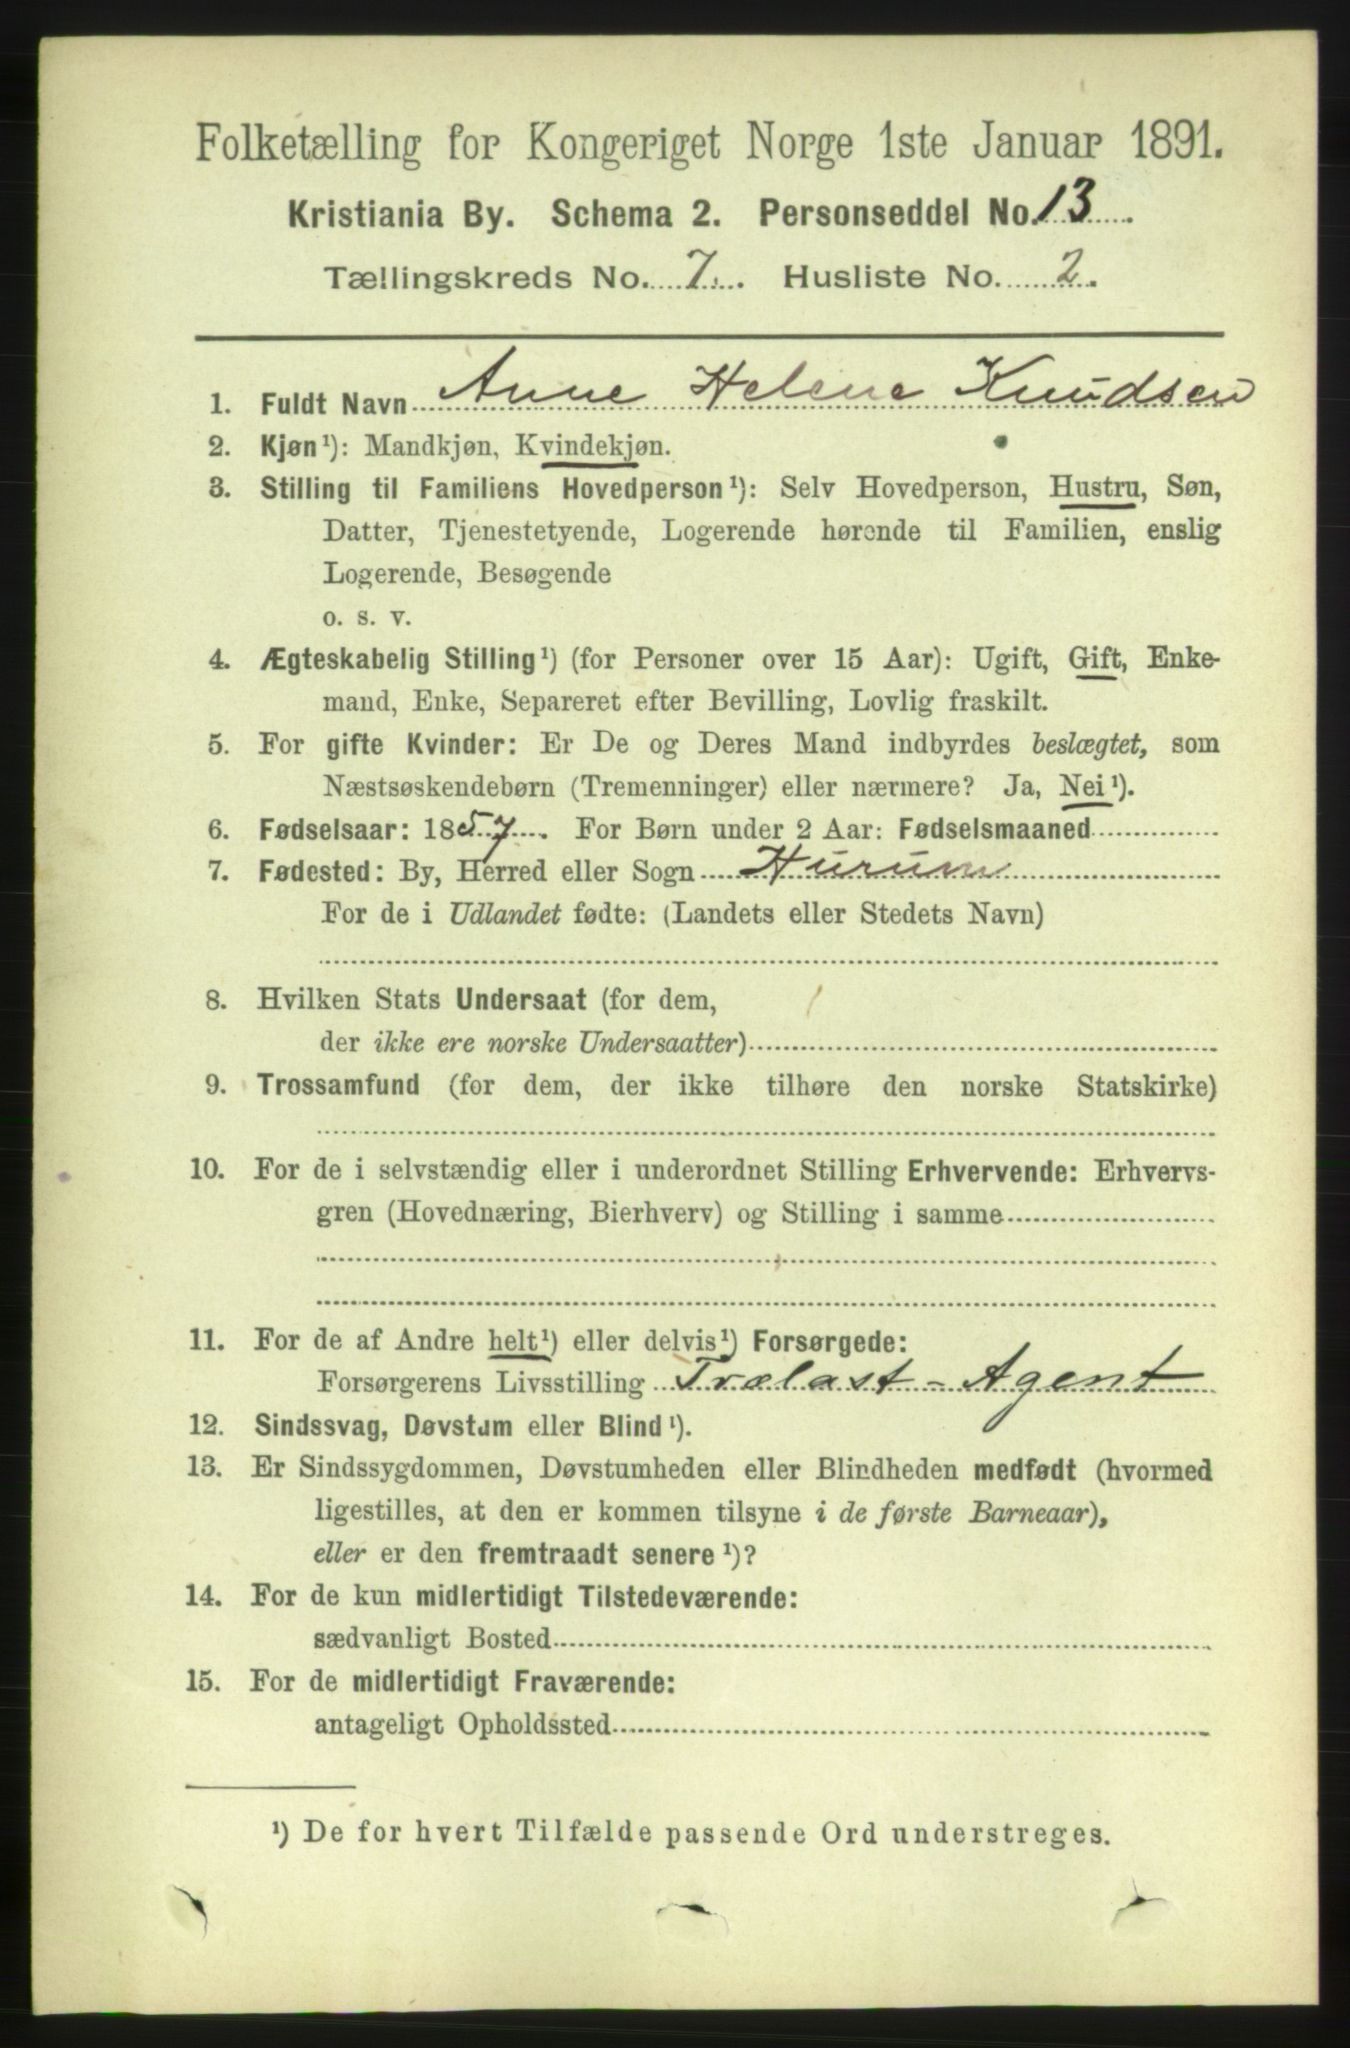 Folketælling for Kongeriget Norge 1ste Januar 1891.
Kristiania By. Schema 2. Personseddel No. 13.
Tællingskreds No. 7. Husliste No. 2.
1. Fuldt Navn Anne Helene Knudsen
2. Kjøn¹): Mandkjøn, Kvindekjøn.
3. Stilling til Familiens Hovedperson¹): Selv Hovedperson, Hustru, Søn,
Datter, Tjenestetyende, Logerende hørende til Familien, enslig
Logerende, Besøgende
o. s. v.
4. Ægteskabelig Stilling¹) (for Personer over 15 Aar): Ugift, Gift, Enke-
mand, Enke, Separeret efter Bevilling, Lovlig fraskilt.
5. For gifte Kvinder: Er De og Deres Mand indbyrdes beslægtet, som
Næstsøskendebørn (Tremenninger) eller nærmere? Ja, Nei¹).
6. Fødselsaar: 1857. For Børn under 2 Aar: Fødselsmaaned
7. Fødested: By, Herred eller Sogn Hurum
For de i Udlandet fødte: (Landets eller Stedets Navn)
8. Hvilken Stats Undersaat (for dem,
der ikke ere norske Undersaatter)
9. Trossamfund (for dem, der ikke tilhøre den norske Statskirke)
10. For de i selvstændig eller i underordnet Stilling Erhvervende: Erhvervs-
gren (Hovednæring, Bierhverv) og Stilling i samme
11. For de af Andre helt¹) eller delvis¹) Forsørgede:
Forsørgerens Livsstilling Trælast-Agent
12. Sindssvag, Døvstum eller Blind¹).
13. Er Sindssygdommen, Døvstumheden eller Blindheden medfødt (hvormed
ligestilles, at den er kommen tilsyne i de første Barneaar),
eller er den fremtraadt senere¹)?
14. For de kun midlertidigt Tilstedeværende:
sædvanligt Bosted
15. For de midlertidigt Fraværende:
antageligt Opholdssted
¹) De for hvert Tilfælde passende Ord understreges.